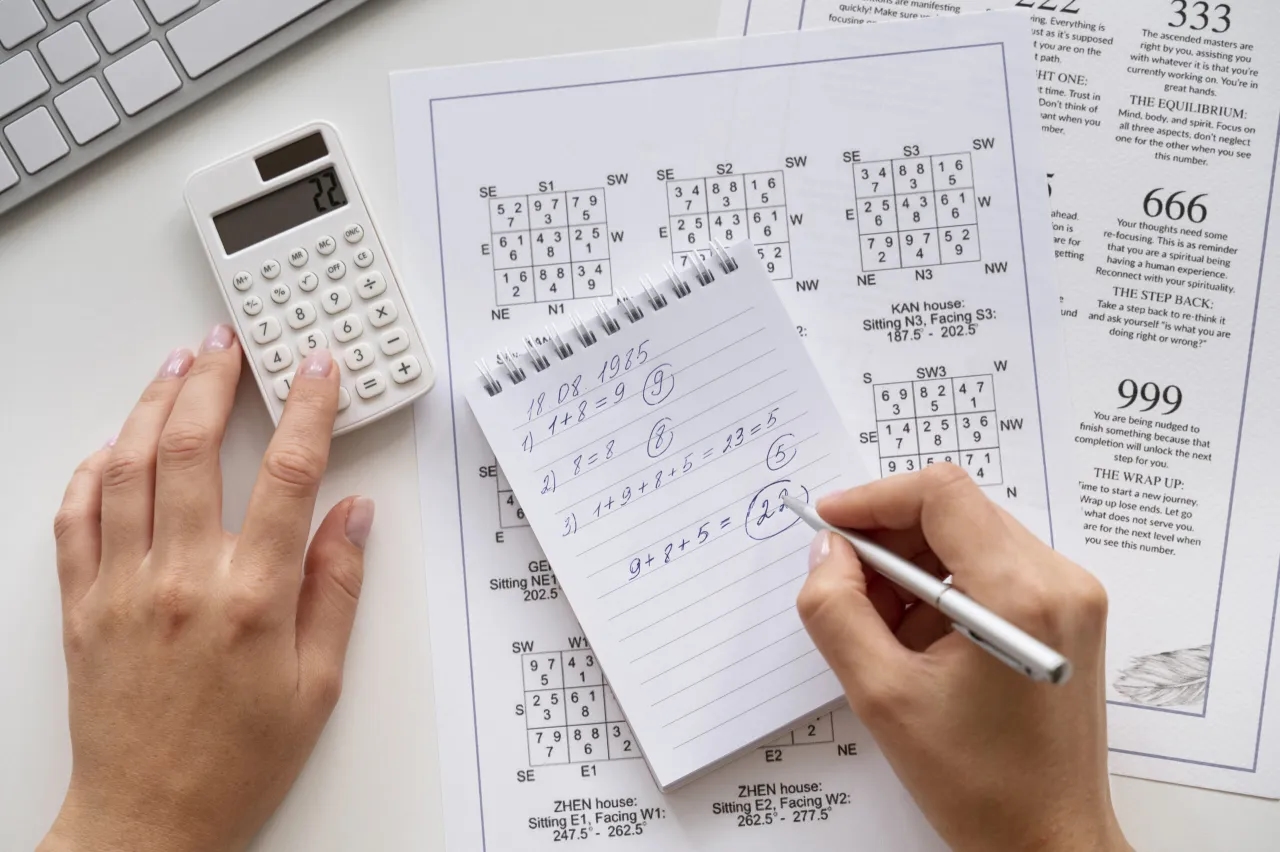 22
M+ M- MR MC ON/C
+/- % √ OFF CE
7 8 9 ÷
4 5 6 ×
1 3 −
= +
18 08 1985
1) 1+8=9 9
2) 8=8 8
3) 1+9+8+5=23=5
5
9+8+5= 22
SE S1 SW
5 2 9 7 7 9
7 3 5
E 6 1 4 3 2 5 W
6 8 1
1 6 8 8 3 4
2 4 9
NE N1
SE S2 SW
3 4 8 8 1 6
7 3 5
E 2 5 4 3 6 1 W
6 8
5 2
9
NW
SE S3 SW
3 4 8 8 1 6
7 3 5
E 2 5 4 3 6 1 W
6 8
7 9 9 7 5 2
2 4 9
NE N3 NW
KAN house:
Sitting N3, Facing S3:
187.5° - 202.5°
S SW3 W
6 9 8 2 4 7
3 5 1
SE 1 4 2 5 3 6 NW
7 8 9
9 3 7 1
4
N
SE
4
6
E
Sitting NE1
202.5°
SW W1
9 7 4 3
5 1
S 2 5 6 1
3 8
7 9 8 8 3
7 6 2
SE E1
ZHEN house:
Sitting E1, Facing W1:
247.5° - 262.5°
2
E2 NE
ZHEN house:
Sitting E2, Facing W2:
262.5° - 277.5°
are manifesting
quickly! Make sure
222
Everything is
as it's supposed
you are on the
path.
time. Trust in
Don't think of
when you
333
The ascended masters are
right by you, assisting you
with whatever it is that you're
currently working on. You're in
great hands.
THE EQUILIBRIUM:
Mind, body, and spirit. Focus on
all three aspects, don't neglect
one for the other when you see
this number.
ahead.
are for
getting
666
Your thoughts need some
re-focusing. This is as reminder
that you are a spiritual being
having a human experience.
Reconnect with your spirituality.
THE STEP BACK:
Take a step back to re-think it
and ask yourself "is what you are
doing right or wrong?"
999
You are being nudged to
finish something because that
completion will unlock the next
step for you.
THE WRAP UP:
Time to start a new journey.
Wrap up lose ends. Let go
what does not serve you.
are for the next level when
you see this number.